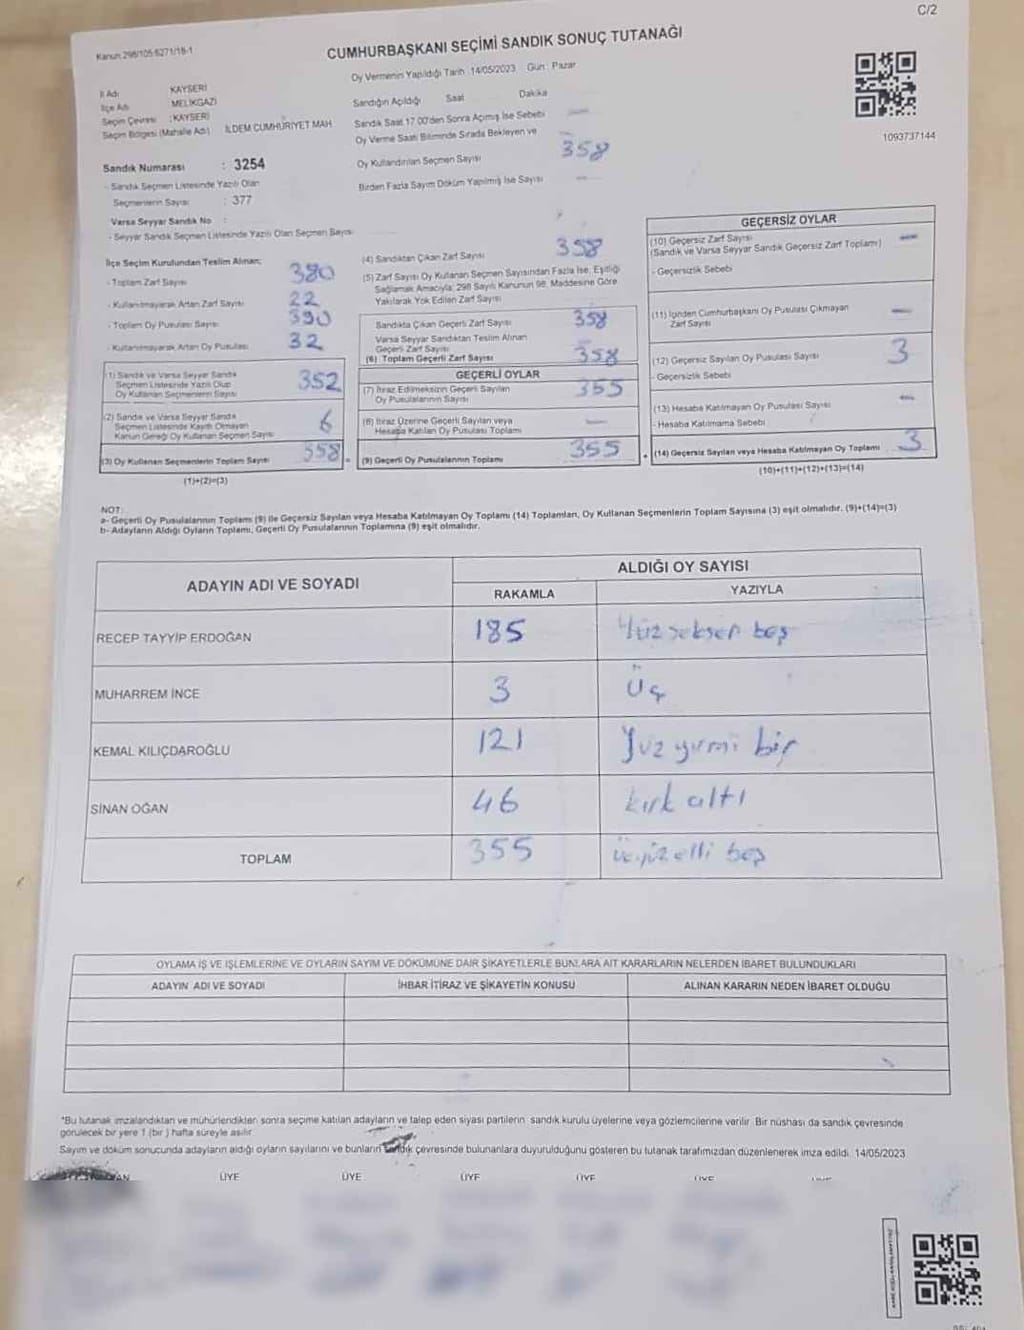 C/2
Kanun 298/105 6271/18-1
CUMHURBAŞKANI SEÇİMİ SANDIK SONUÇ TUTANAĞI
Oy Vermenin Yapıldığı Tarih :14/05/2023 Gün : Pazar
İl Adı KAYSERİ
İlçe Adı MELİKGAZİ
Seçim Çevresi : KAYSERİ
Seçim Bölgesi (Mahalle Adı) İLDEM CUMHURİYET MAH.
Sandığın Açıldığı Saat Dakika
Sandık Saat 17.00'den Sonra Açımış İse Sebebi —
Oy Verme Saati Bitiminde Sırada Bekleyen ve
Oy Kullandırılan Seçmen Sayısı 358
Birden Fazla Sayım Döküm Yapılmış İse Sayısı —
1093737144
Sandık Numarası : 3254
- Sandık Seçmen Listesinde Yazılı Olan
Seçmenlerin Sayısı : 377
Varsa Seyyar Sandık No :
- Seyyar Sandık Seçmen Listesinde Yazılı Olan Seçmen Sayısı
İlçe Seçim Kurulundan Teslim Alınan;
- Toplam Zarf Sayısı 380
- Kullanılmayarak Artan Zarf Sayısı 22
- Toplam Oy Pusulası Sayısı 390
- Kullanılmayarak Artan Oy Pusulası 32
(1) Sandık ve Varsa Seyyar Sandık
Seçmen Listesinde Yazılı Olup
Oy Kullanan Seçmenlerin Sayısı 352
(2) Sandık ve Varsa Seyyar Sandık
Seçmen Listesinde Kayıtlı Olmayan
Kanun Gereği Oy Kullanan Seçmen Sayısı 6
(3) Oy Kullanan Seçmenlerin Toplam Sayısı 358
(1)+(2)=(3)
(4) Sandıktan Çıkan Zarf Sayısı 358
(5) Zarf Sayısı Oy Kullanan Seçmen Sayısından Fazla İse, Eşitliği
Sağlamak Amacıyla; 298 Sayılı Kanunun 98. Maddesine Göre
Yakılarak Yok Edilen Zarf Sayısı
Sandıkta Çıkan Geçerli Zarf Sayısı 358
Varsa Seyyar Sandıktan Teslim Alınan
Geçerli Zarf Sayısı
(6) Toplam Geçerli Zarf Sayısı 358
GEÇERLİ OYLAR
(7) İtiraz Edilmeksizin Geçerli Sayılan
Oy Pusulalarının Sayısı 355
(8) İtiraz Üzerine Geçerli Sayılan veya
Hesaba Katılan Oy Pusulası Toplamı —
(9) Geçerli Oy Pusulalarının Toplamı 355
GEÇERSİZ OYLAR
(10) Geçersiz Zarf Sayısı —
(Sandık ve Varsa Seyyar Sandık Geçersiz Zarf Toplamı)
- Geçersizlik Sebebi
(11) İçinden Cumhurbaşkanı Oy Pusulası Çıkmayan
Zarf Sayısı —
(12) Geçersiz Sayılan Oy Pusulası Sayısı 3
- Geçersizlik Sebebi
(13) Hesaba Katılmayan Oy Pusulası Sayısı —
- Hesaba Katılmama Sebebi
(14) Geçersiz Sayılan veya Hesaba Katılmayan Oy Toplamı 3
(10)+(11)+(12)+(13)=(14)
NOT:
a- Geçerli Oy Pusulalarının Toplamı (9) ile Geçersiz Sayılan veya Hesaba Katılmayan Oy Toplamı (14) Toplamları, Oy Kullanan Seçmenlerin Toplam Sayısına (3) eşit olmalıdır. (9)+(14)=(3)
b- Adayların Aldığı Oyların Toplamı, Geçerli Oy Pusulalarının Toplamına (9) eşit olmalıdır.
ADAYIN ADI VE SOYADI
ALDIĞI OY SAYISI
RAKAMLA YAZIYLA
RECEP TAYYİP ERDOĞAN 185 Yüz seksen beş
MUHARREM İNCE 3 Üç
KEMAL KILIÇDAROĞLU 121 Yüz yirmi bir
SİNAN OĞAN 46 kırk altı
TOPLAM 355 üçyüz elli beş
OYLAMA İŞ VE İŞLEMLERİNE VE OYLARIN SAYIM VE DÖKÜMÜNE DAİR ŞİKAYETLERLE BUNLARA AİT KARARLARIN NELERDEN İBARET BULUNDUKLARI
ADAYIN ADI VE SOYADI İHBAR İTİRAZ VE ŞİKAYETİN KONUSU ALINAN KARARIN NEDEN İBARET OLDUĞU
*Bu tutanak imzalandıktan ve mühürlendikten sonra seçime katılan adayların ve talep eden siyasi partilerin sandık kurulu üyelerine veya gözlemcilerine verilir. Bir nüshası da sandık çevresinde
görülecek bir yere 1 (bir ) hafta süreyle asılır.
Sayım ve döküm sonucunda adayların aldığı oyların sayılarını ve bunların sandık çevresinde bulunanlara duyurulduğunu gösteren bu tutanak tarafımızdan düzenlenerek imza edildi. 14/05/2023
ÜYE ÜYE ÜYE ÜYE